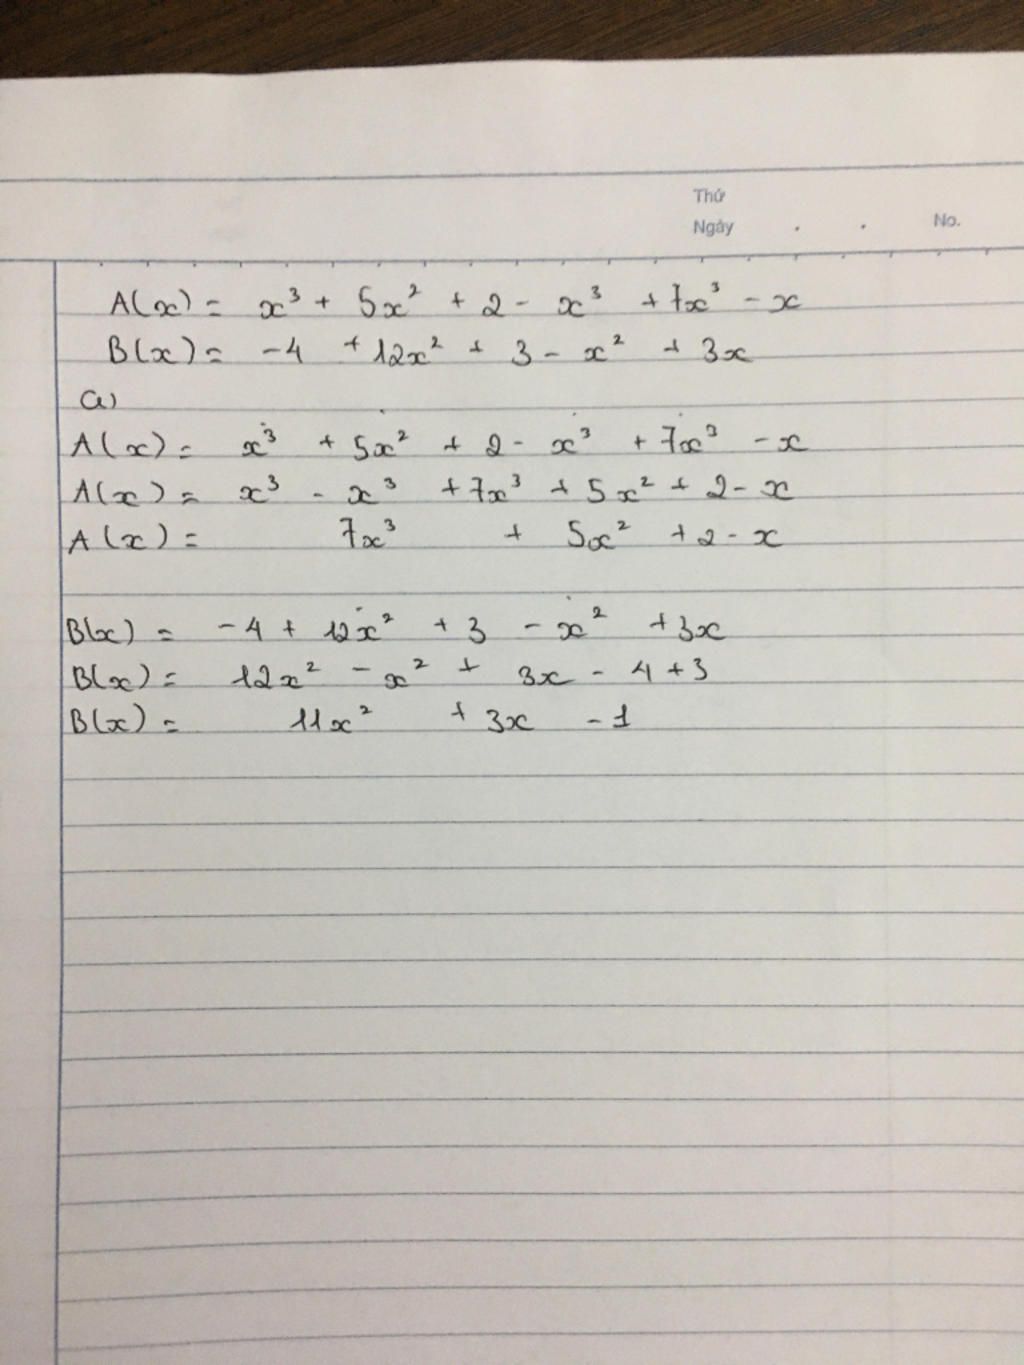 Thứ
Ngày . . No.
A(x) = x³ + 5x² + 2 - x³ + 7x³ - x
B(x) = -4 + 12x² + 3 - x² + 3x
a)
A(x) = x³ + 5x² + 2 - x³ + 7x³ - x
A(x) = x³ - x³ + 7x³ + 5x² + 2 - x
A(x) = 7x³ + 5x² + 2 - x
B(x) = -4 + 12x² + 3 - x² + 3x
B(x) = 12x² - x² + 3x - 4 + 3
B(x) = 11x² + 3x - 1